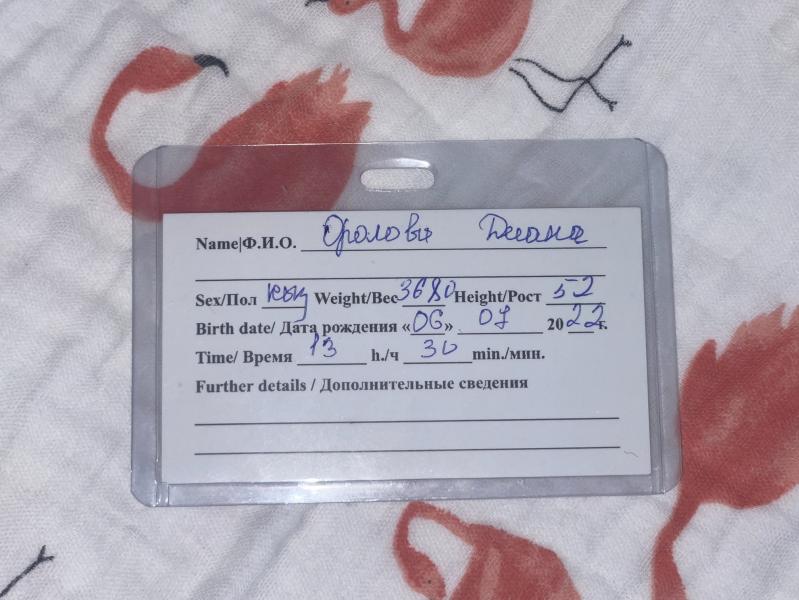 Name|Ф.И.О. Фролова Диана
Sex/Пол кыз Weight/Вес 3680 Height/Рост 52
Birth date/ Дата рождения «06» 07 2022г.
Time/ Время 13 h./ч 30 min./мин.
Further details / Дополнительные сведения